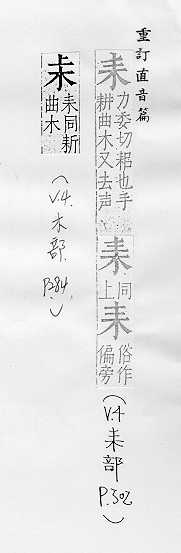 重訂直音篇
耒 力委切耜也手
耕曲木又去声
耒 同上
耒 俗作偏旁
(V.4 耒部 P.302)
耒 耒同斩
曲木
(V.4. 木部. P.284.)